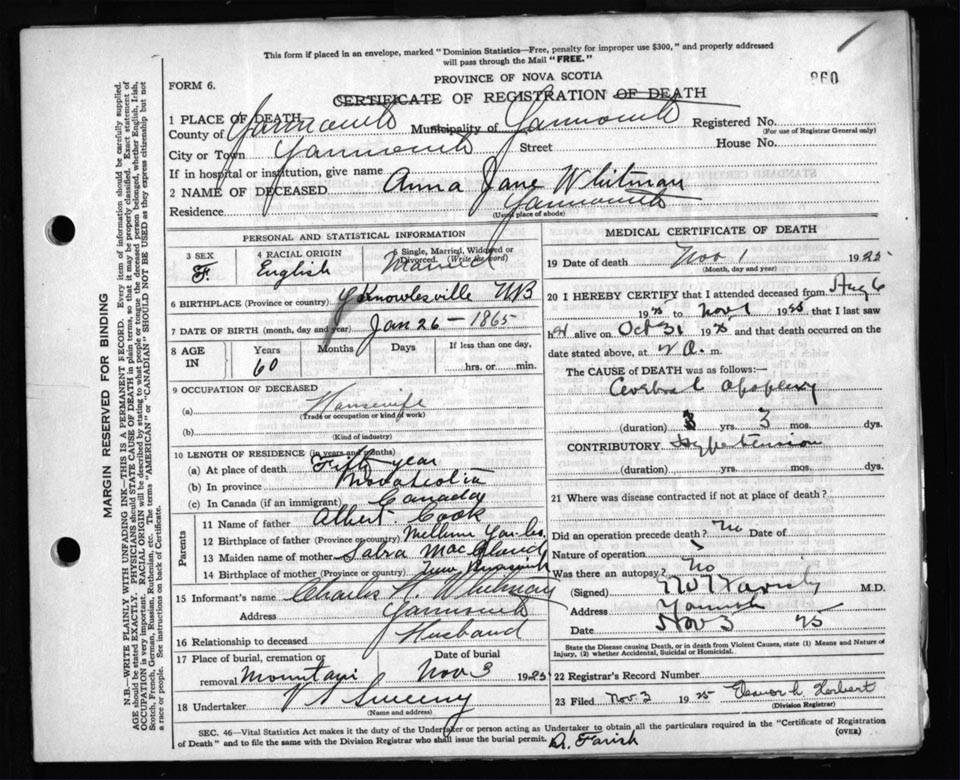 This form if placed in an envelope, marked "Dominion Statistics—Free, penalty for improper use $300," and properly addressed
will pass through the Mail "FREE."
860
PROVINCE OF NOVA SCOTIA
FORM 6.
CERTIFICATE OF REGISTRATION OF DEATH
1 PLACE OF DEATH
County of Yarmouth Municipality of Yarmouth Registered No.
(For use of Registrar General only)
City or Town Yarmouth Street House No.
If in hospital or institution, give name
2 NAME OF DECEASED Anna Jane Whitman
Residence Yarmouth
(Usual place of abode)
PERSONAL AND STATISTICAL INFORMATION
3 SEX 4 RACIAL ORIGIN 5 Single, Married, Widowed or
Divorced. (Write the word)
F. English Married
6 BIRTHPLACE (Province or country) Knowlesville NB
7 DATE OF BIRTH (month, day and year) Jan 26 - 1865
8 AGE IN Years Months Days If less than one day,
60 hrs. or min.
9 OCCUPATION OF DECEASED
(a) Housewife
(Trade or occupation or kind of work)
(b)
(Kind of industry)
10 LENGTH OF RESIDENCE (in years and months)
(a) At place of death Fifty year
(b) In province Nova Scotia
(c) In Canada (if an immigrant) Canada
Parents
11 Name of father Albert Cook
12 Birthplace of father (Province or country)
13 Maiden name of mother Sabra
14 Birthplace of mother (Province or country) New Brunswick
15 Informant's name Charles Whitman
Address Yarmouth
16 Relationship to deceased Husband
17 Place of burial, cremation or removal Date of burial
Mountain Nov 3 1925
18 Undertaker V Sweeny
(Name and address)
MEDICAL CERTIFICATE OF DEATH
19 Date of death Nov 1 1925
(Month, day and year)
20 I HEREBY CERTIFY that I attended deceased from Aug 6
1925 to Nov 1 1925 that I last saw
her alive on Oct 31 1925 and that death occurred on
date stated above, at a. m.
The CAUSE of DEATH was as follows:—
Cerebral apoplexy
(duration) yrs. 3 mos. dys.
CONTRIBUTORY Hypertension
(duration) yrs. mos. dys.
21 Where was disease contracted if not at place of death?
Did an operation precede death? No Date of
Nature of operation
Was there an autopsy? No
(Signed) Farish M.D.
Address Yarmouth
Date Nov 3 25
State the Disease causing Death, or in death from Violent Causes, state (1) Means and Nature of
Injury, (2) whether Accidental, Suicidal or Homicidal.
22 Registrar's Record Number
23 Filed Nov 3 1925 Herbert
(Division Registrar)
SEC. 46—Vital Statistics Act makes it the duty of the Undertaker or person acting as Undertaker to obtain all the particulars required in the "Certificate of Registration
of Death" and to file the same with the Division Registrar who shall issue the burial permit. (OVER)
Dr. Farish
MARGIN RESERVED FOR BINDING
N.B.—WRITE PLAINLY WITH UNFADING INK—THIS IS A PERMANENT RECORD. Every item of information should be carefully supplied.
AGE should be stated EXACTLY. PHYSICIANS should STATE CAUSE OF DEATH in plain terms, so that it may be properly classified. Exact statement of
OCCUPATION is very important. RACIAL ORIGIN will be described by stating to what people or tongue the deceased person belonged, whether English, Irish,
Scotch, French, German, Russian, Ruthenian, etc. The terms "AMERICAN" or "CANADIAN" SHOULD NOT BE USED as they express citizenship but not
a race or people. See instructions on back of Certificate.